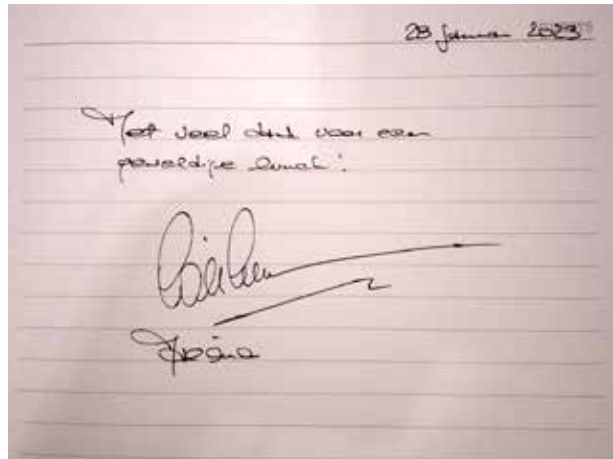 28 januari 2023
Met veel dank voor een
geweldige lunch!